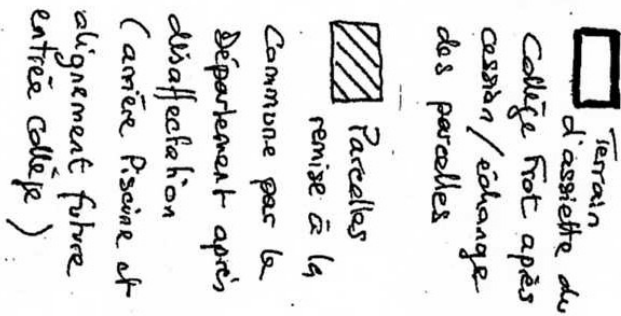 Terrain
d'assiette du
Collège Frot après
cession / échange
des parcelles
Parcelles
remise à la
Commune par le
Département après
désaffectation
(arrière Piscine et
alignement future
entrée collège)